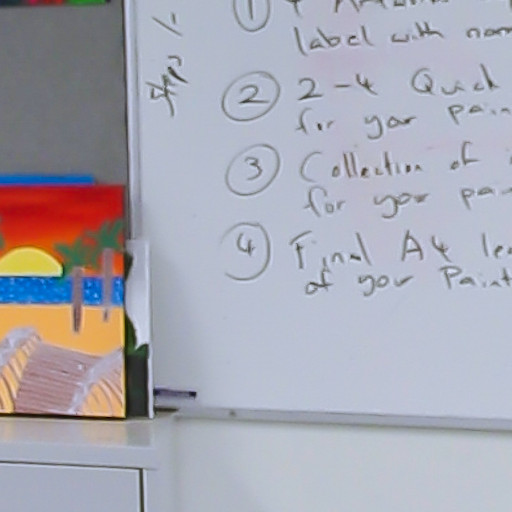 Steps
①
label with nam
② 2-4 Quick
for your pain
③ Collection of
for your pai
④ Final A4 lea
of your Paint